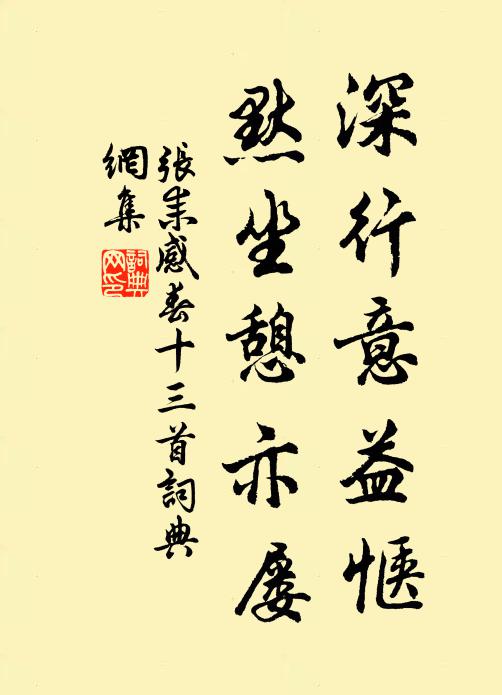 深行意益惬
默坐憩亦屡
張耒感春十三首詞典
網集
詞典網印